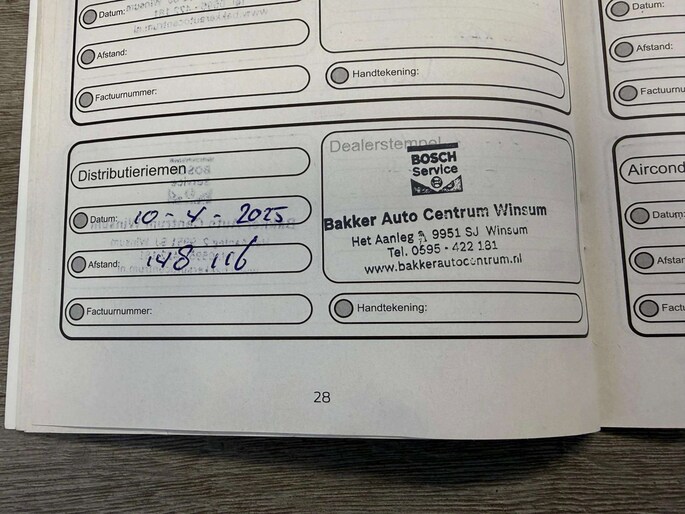 Datum:
Afstand:
Factuurnummer:
Handtekening:
Datum:
Afstand:
Distributieriemen
Datum: 10-4-2025
Afstand: 148 116
Factuurnummer:
Dealerstempel
BOSCH
Service
Bakker Auto Centrum Winsum
Het Aanleg 9951 SJ Winsum
Tel. 0595 - 422 181
www.bakkerautocentrum.nl
Handtekening:
Aircond
Datum:
Afstan
28